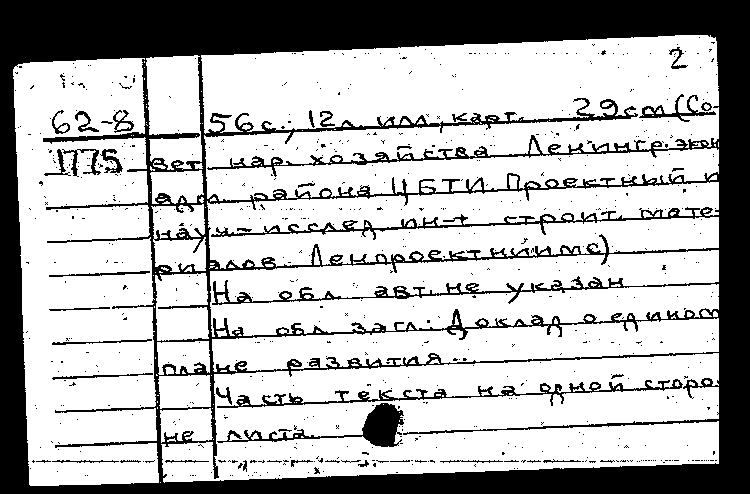 2
62-8 56 с.; 12 л. илл., карт. 29 cm (Со-
1775 вет нар. хозяйства Ленингр. экон
адм района ЦБТИ. Проектный и
науч-исслед. ин-т строит. мате-
риалов Ленпроектниимс)
На обл. авт. не указан
На обл. загл.: Доклад о едином
плане развития...
Часть текста на одной сторо-
не листа.